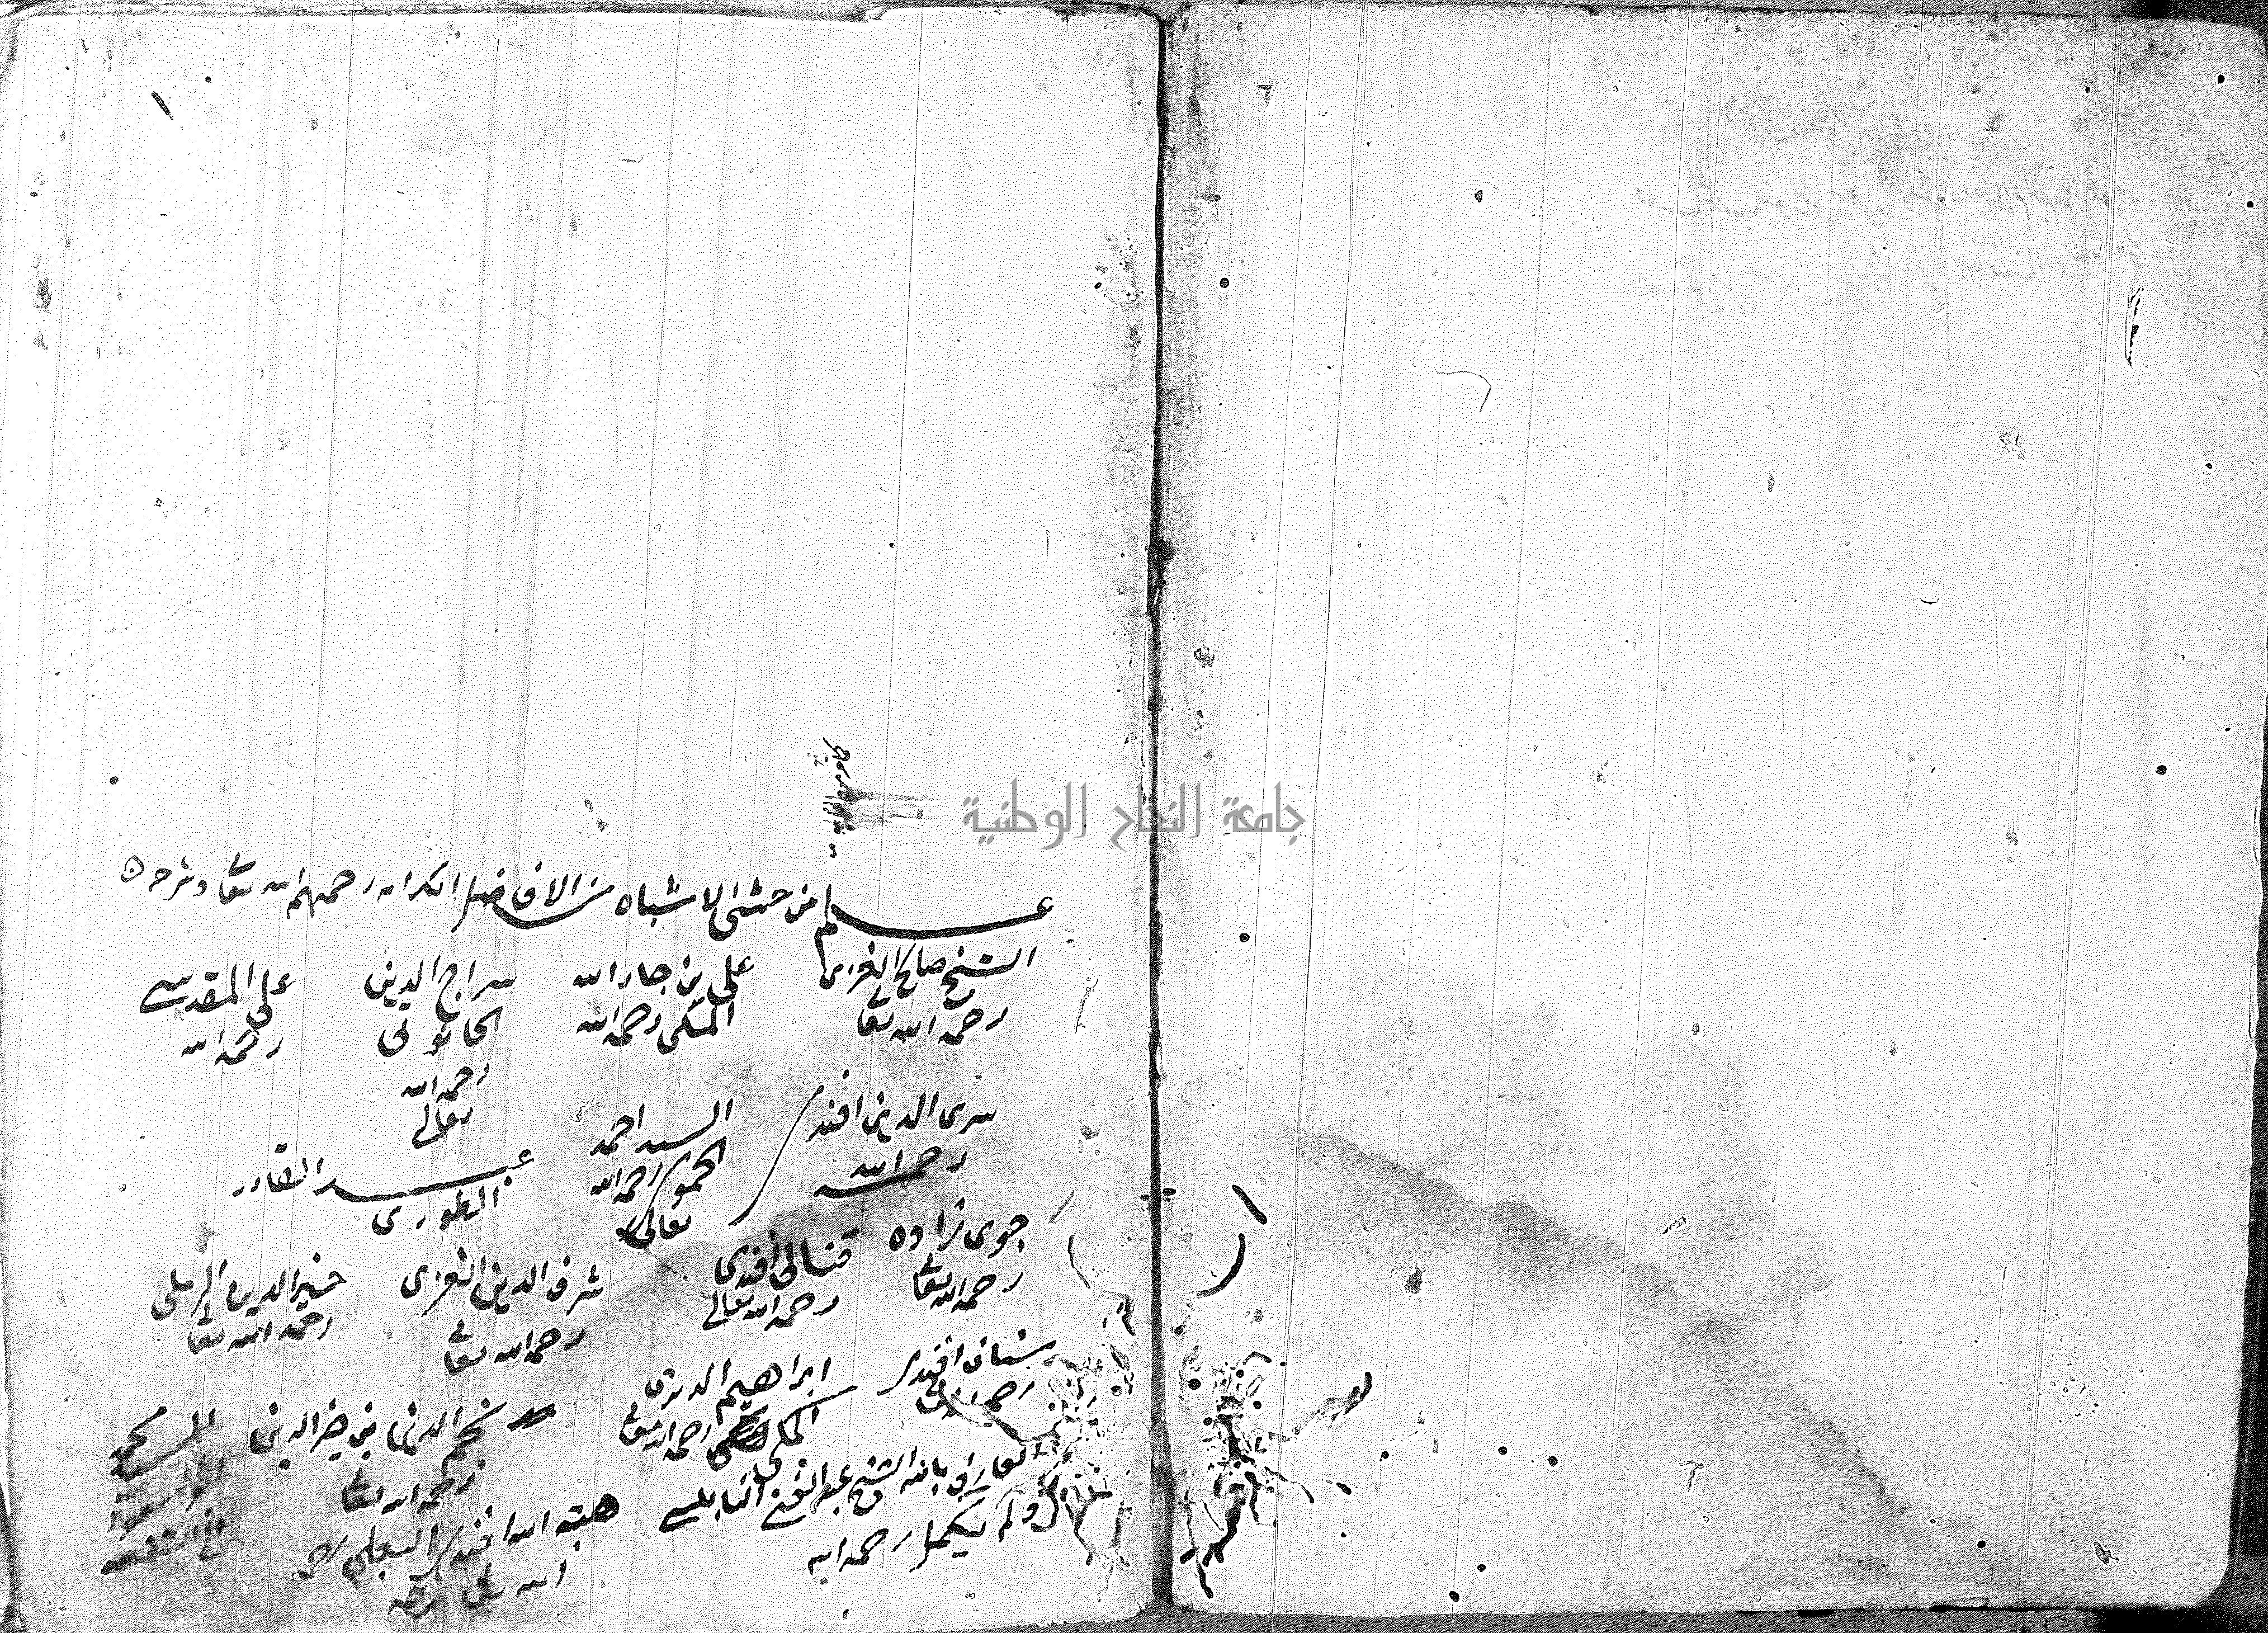 ١
جامعة النجاح الوطنية
علم من حشى الاشباه من الافاضل الكرام رحمهم الله تعا وشرحه
الشيخ صالح الغزى
رحمه الله تعا
على بن جار الله
المكى رحمه الله
سراج الدين
الحانوتى
رحمه الله
تعالى
على المقدسى
رحمه الله
سرى الدين افندى
رحمه الله
السيد احمد
الحموى رحمه الله
تعالى
عبد القادر
الطورى
جوى زاده
رحمه الله تعا
قنالى افندى
رحمه الله تعالى
شرف الدين الغزى
رحمه الله تعا
خير الدين الرملى
رحمه الله تعا
سنان افندى
رحمه الله
ابراهيم
رحمه الله تعا
نجم الدين بن خير الدين
رحمه الله تعا
السيد محمد
ابو السعود
العارف بالله الشيخ عبد الغنى النابلسى
ولم يكمل رحمه الله
هبة الله افندى البعلى